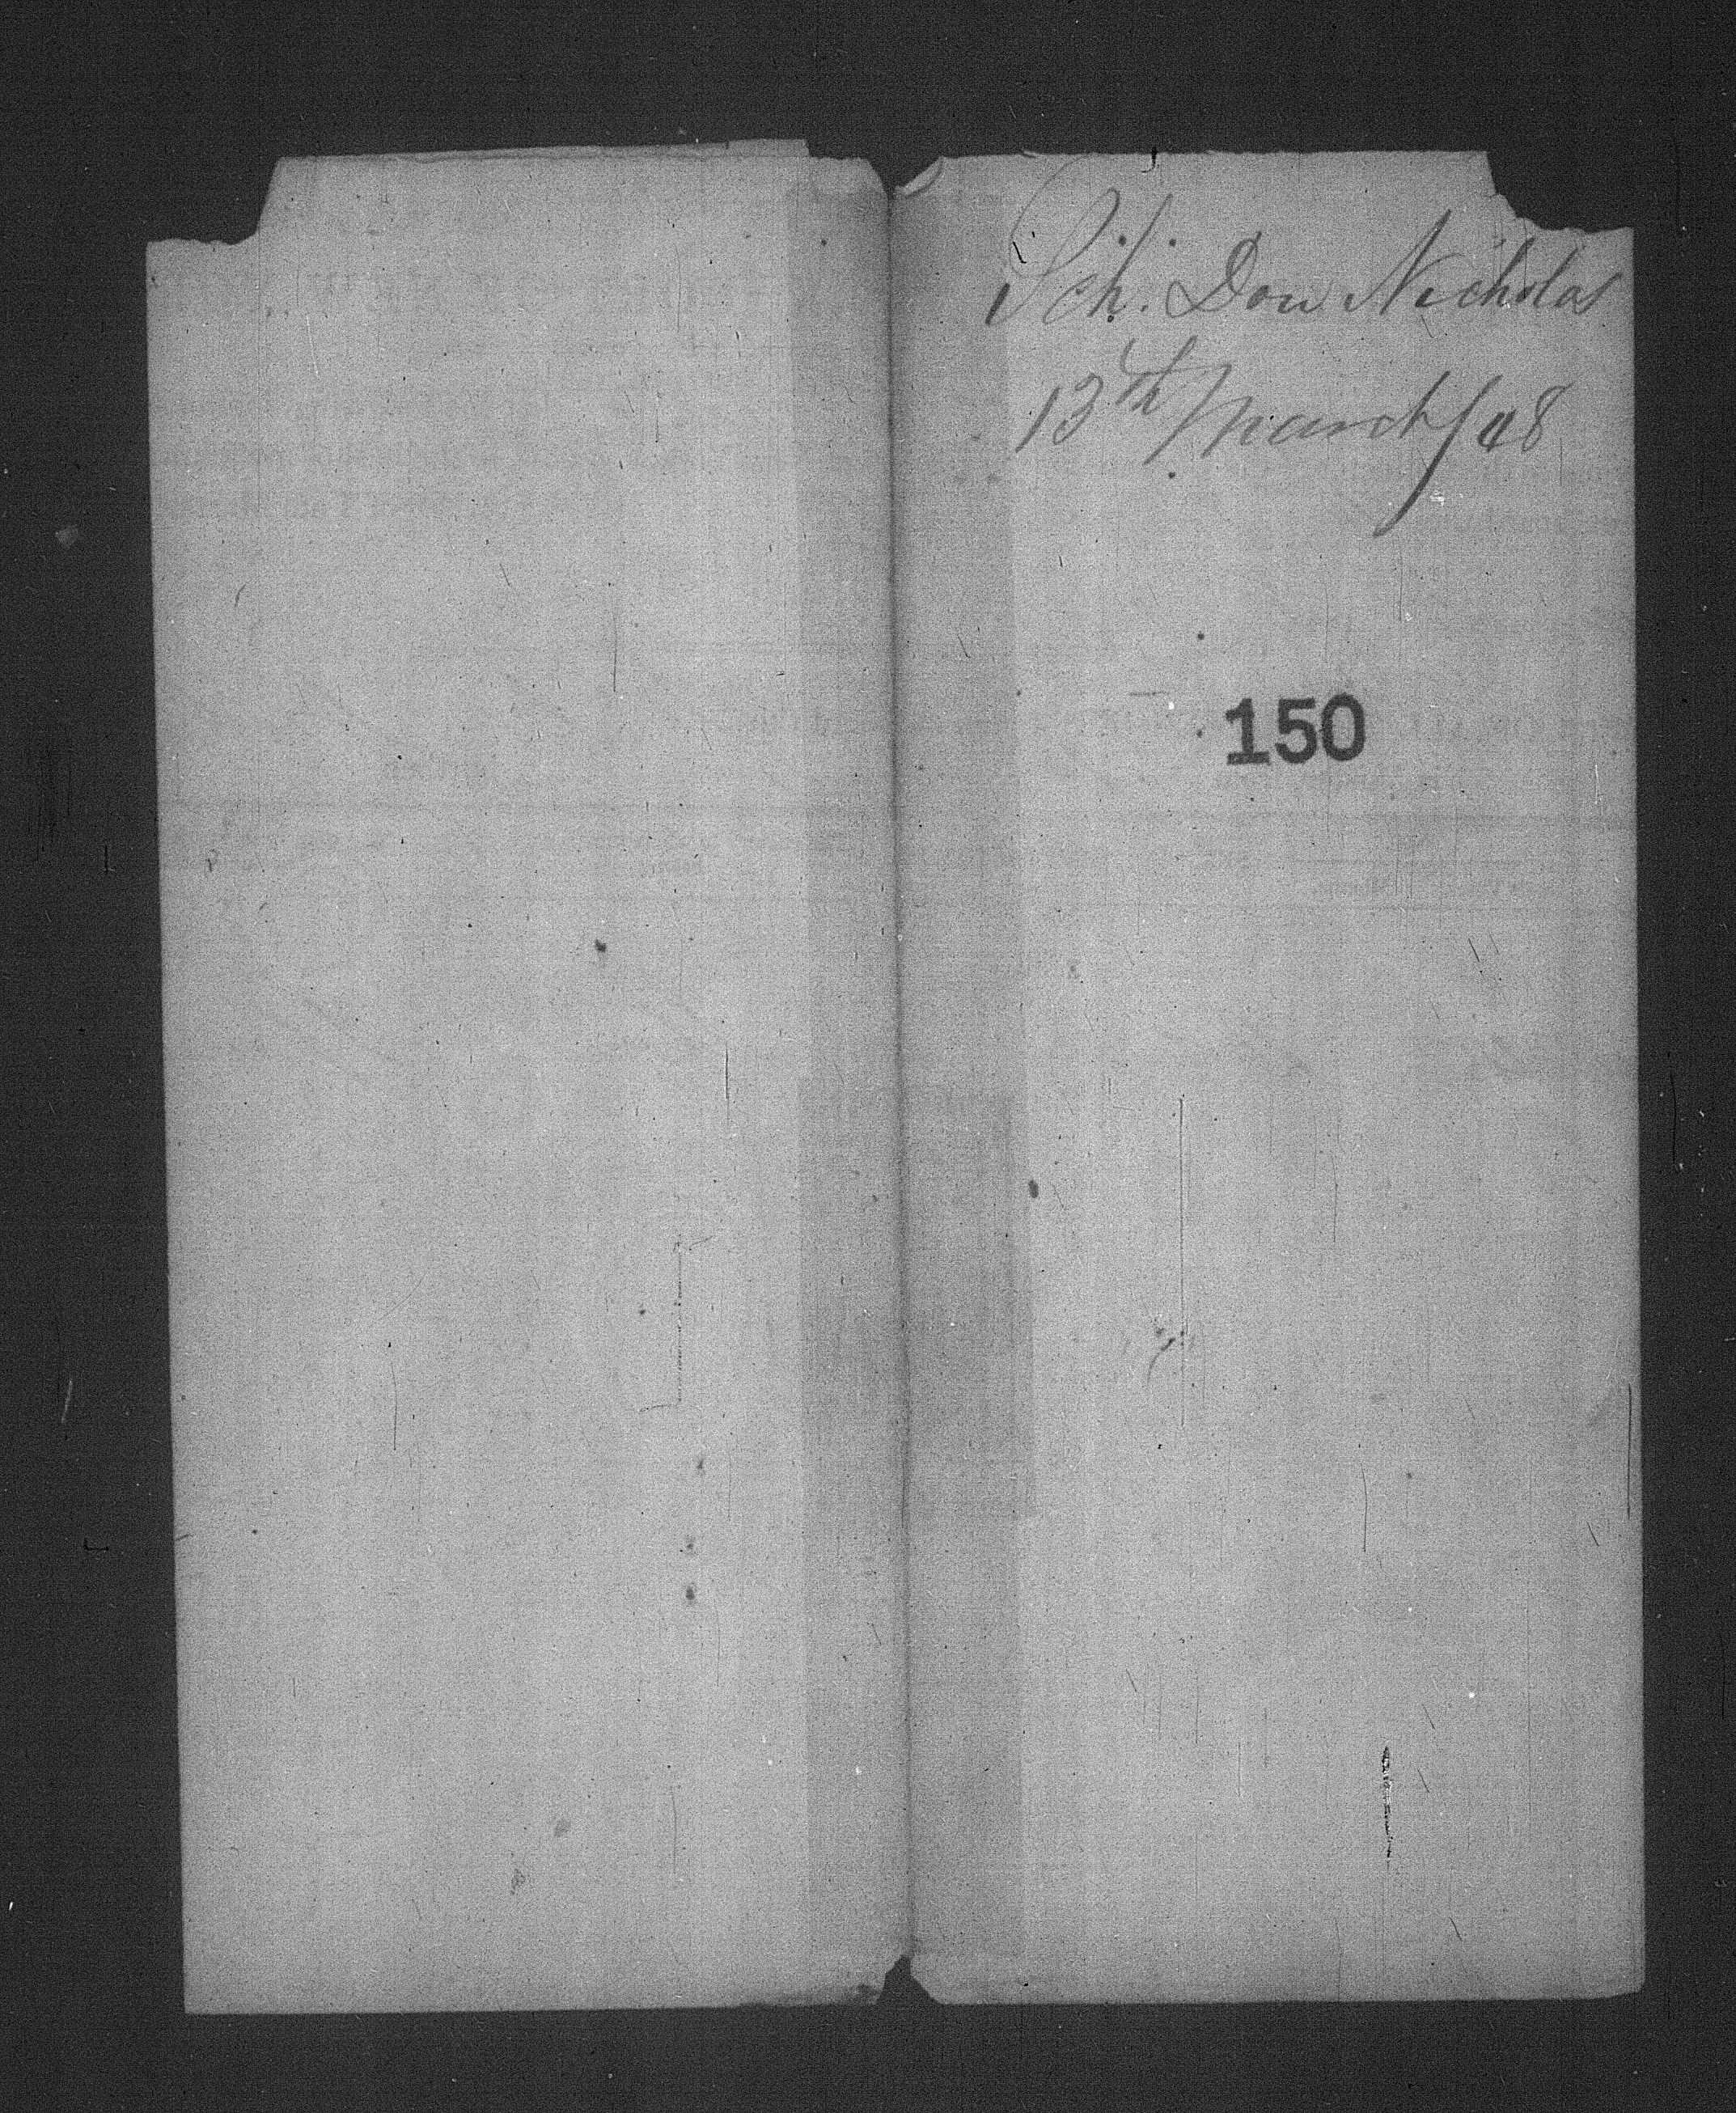 Sch. Don Nicholas
13th March/48
150